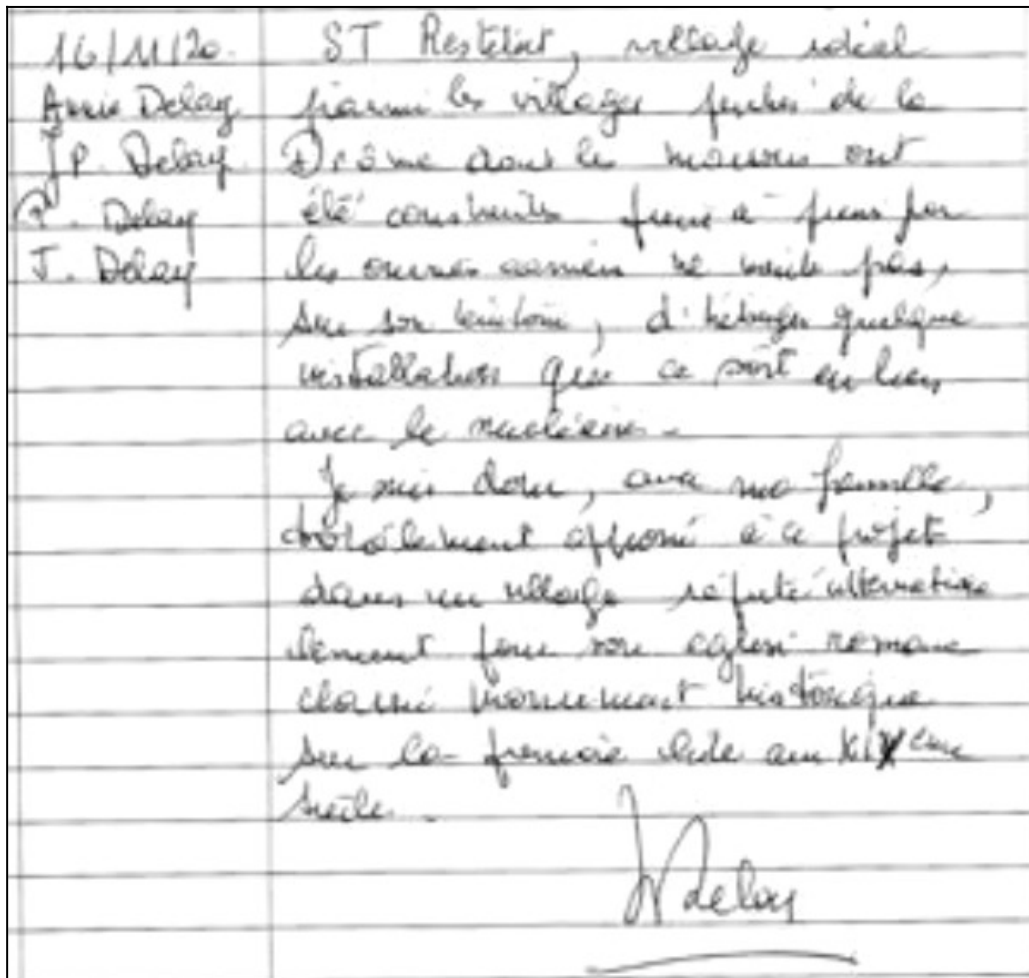 16/11/20.
Annie Delay
JP. Delay.
P. Delay
J. Delay
ST Restitut, village idéal
parmi les villages perchés de la
Drôme dont les maisons ont
été construites pierre à pierre par
les ne mérite pas,
sur son territoire, d'héberger quelque
installation que ce soit en lien
avec le nucléaire.
Je suis donc, avec ma famille,
totalement opposé à ce projet
dans un village réputé internationa
lement pour son église romane
classée monument historique
sur la première liste au XIXème
siècle.
JP Delay